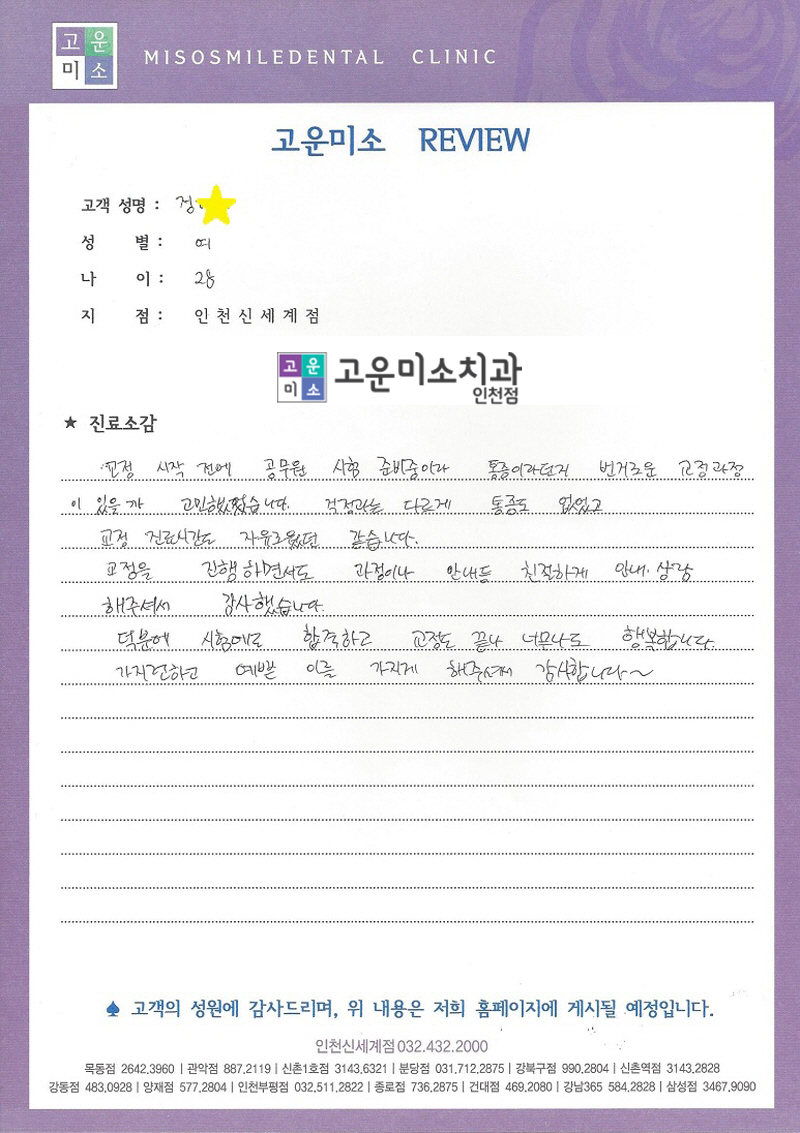 고운
미소
MISOSMILEDENTAL CLINIC
고운미소 REVIEW
고객 성명 : 정
성 별 : 여
나 이 : 28
지 점 : 인천신세계점
고운
미소
고운미소치과
인천점
★ 진료소감
교정 시작 전에 공무원 시험 준비중이라 통증이라던지 번거로운 교정과정
이 있을까 고민했었습니다. 걱정과는 다르게 통증도 없었고
교정 진료시간도 자유로웠던 같습니다.
교정을 진행하면서도 과정이나 안내등 친절하게 안내·상담
해주셔서 감사했습니다.
덕분에 시험에도 합격하고 교정도 끝나 너무나도 행복합니다.
가지런하고 예쁜 이를 가지게 해주셔서 감사합니다~
♠ 고객의 성원에 감사드리며, 위 내용은 저희 홈페이지에 게시될 예정입니다.
인천신세계점 032.432.2000
목동점 2642.3960 | 관악점 887.2119 | 신촌1호점 3143.6321 | 분당점 031.712.2875 | 강북구점 990.2804 | 신촌역점 3143.2828
강동점 483.0928 | 양재점 577.2804 | 인천부평점 032.511.2822 | 종로점 736.2875 | 건대점 469.2080 | 강남365 584.2828 | 삼성점 3467.9090